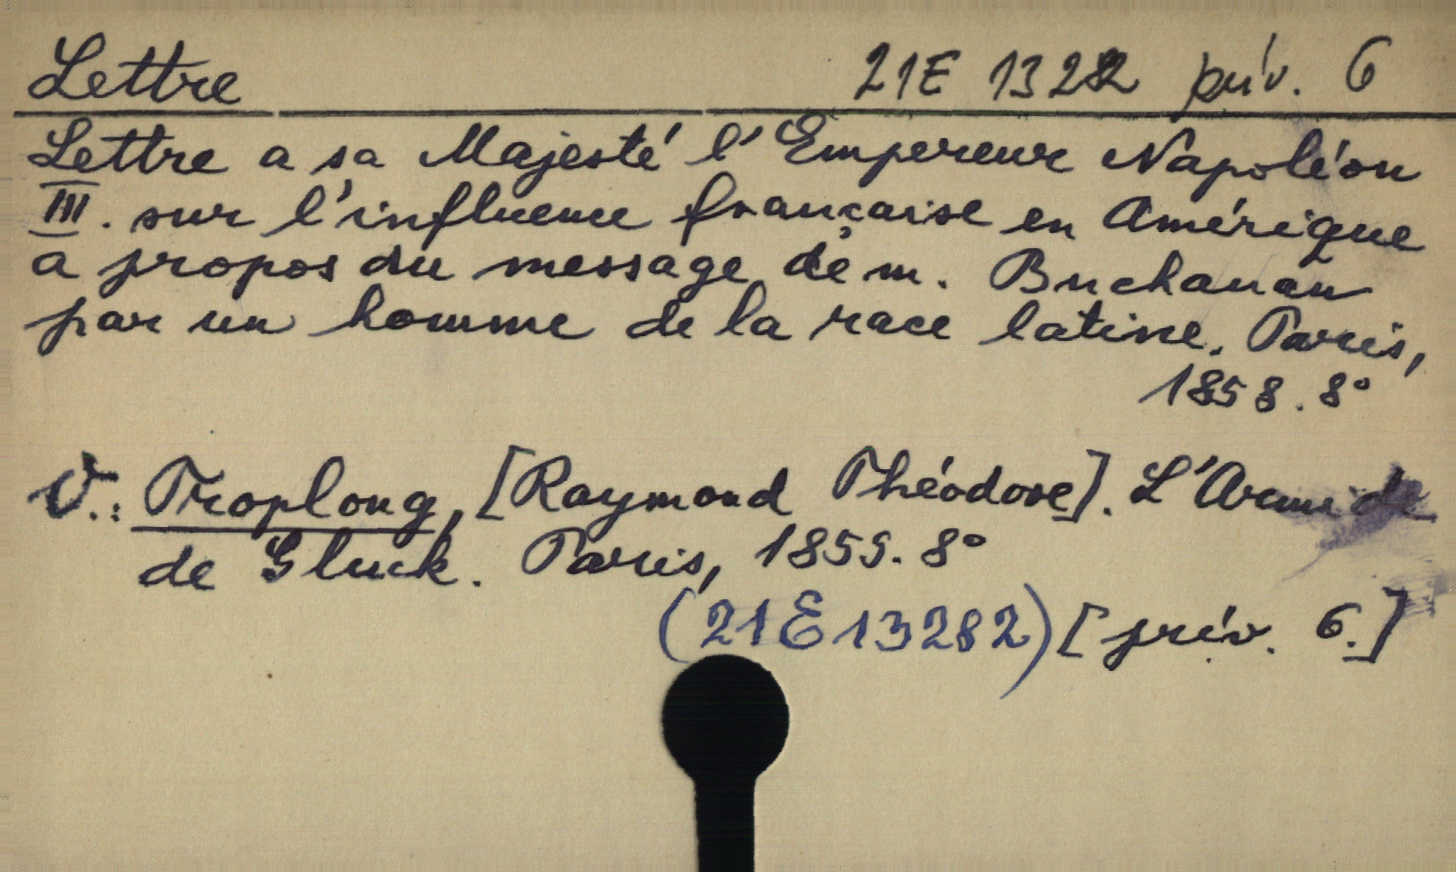 Lettre 21E 13282 přív. 6
Lettre a sa Majesté l'Empereur Napoléon
III. sur l'influence française en Amérique
a propos du message de m. Buchanan
par un homme de la race latine. Paris,
1858. 8°
V.: Troplong, [Raymond Théodore]. L'Armide
de Gluck. Paris, 1859. 8°
(21E13282) [přív. 6.]